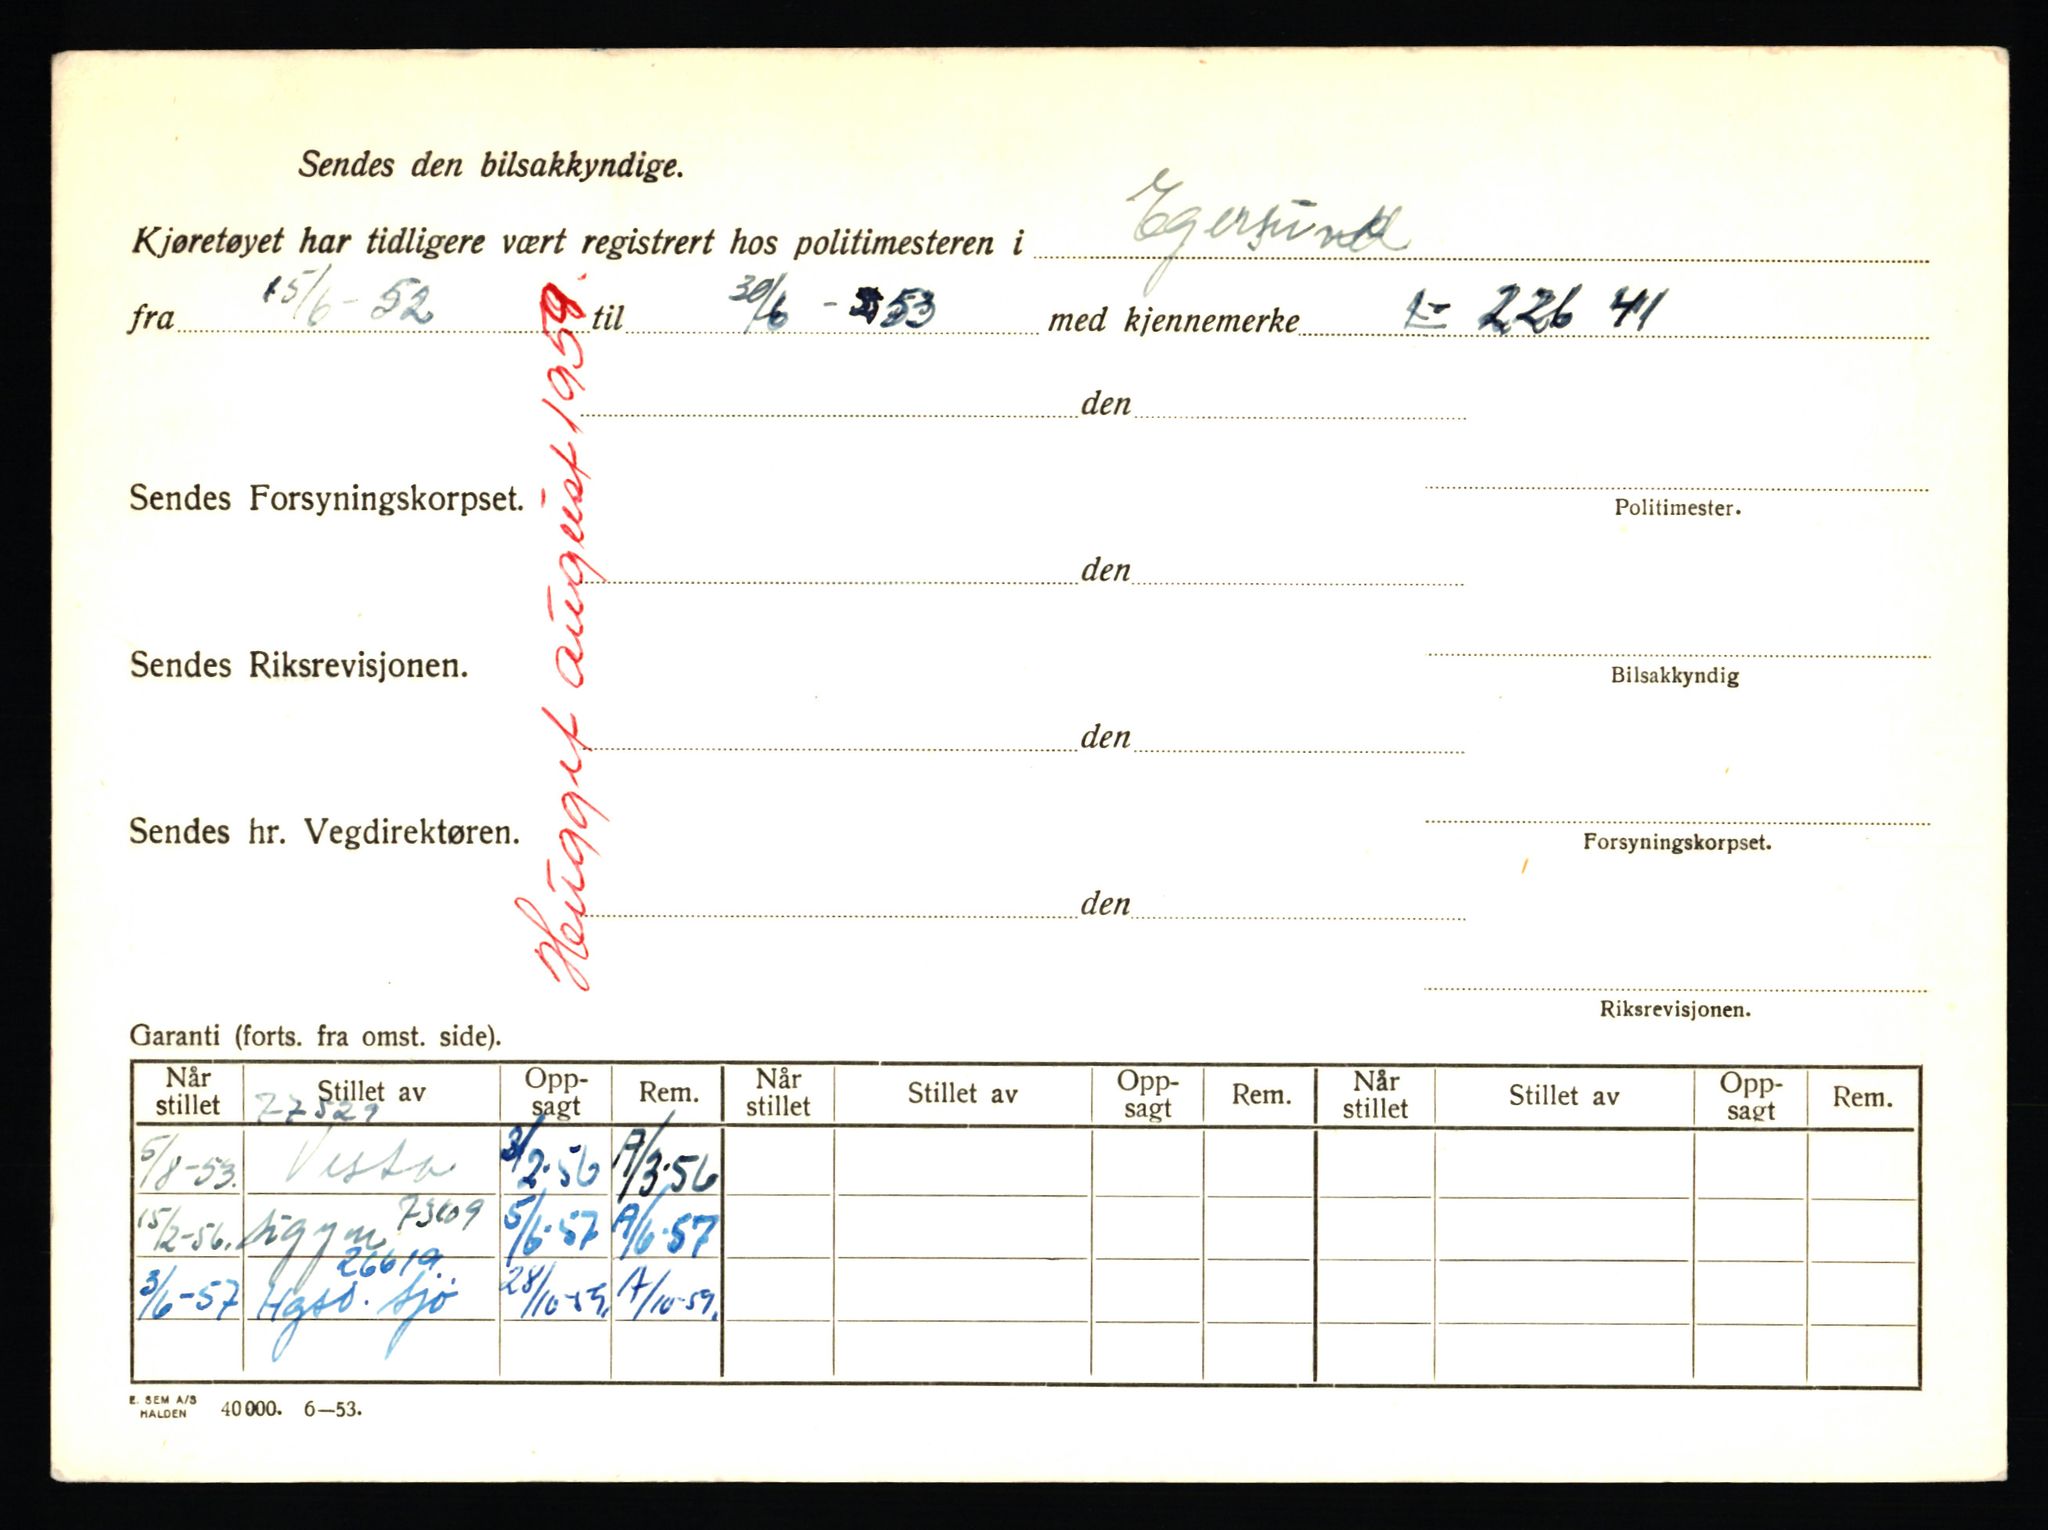 Sendes den bilsakkyndige.
Kjøretøyet har tidligere vært registrert hos politimesteren i Egersund
fra 15/6 - 52 til 30/6 - 53 med kjennemerke L- 226 41
den
Sendes Forsyningskorpset.
Politimester.
den
Sendes Riksrevisjonen.
Bilsakkyndig
den
Sendes hr. Vegdirektøren.
Forsyningskorpset.
den
Riksrevisjonen.
Hugget august 1959.
Garanti (forts. fra omst. side).
Når stillet Stillet av Opp-sagt Rem. Når stillet Stillet av Opp-sagt Rem. Når stillet Stillet av Opp-sagt Rem.
77529
5/8-53. Vesta 3/2-56 A/3-56
15/2-56. Sigyn 73109 5/6-57 A/6-57
26619.
3/6-57 Hgsd. Sjø 28/10-59. A/10-59.
E. SEM A/S
HALDEN 40000. 6—53.